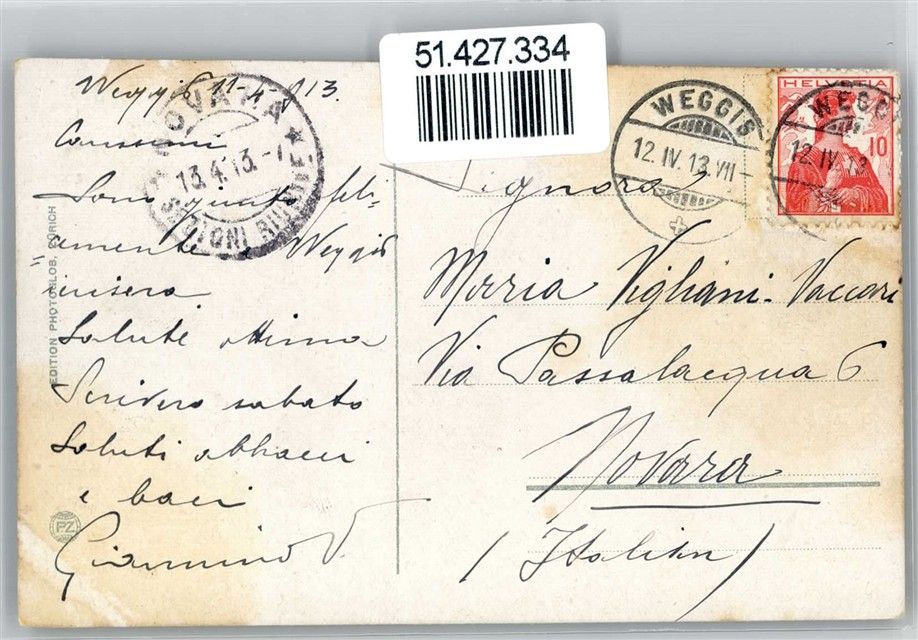 51.427.334
Weggis 11-4-913.
Carissimi
Sono giunto feli-
cemente a Weggis
iersera
Salute ottima
Scriverò sabato
Saluti abbracci
e baci
Giannino V.
EDITION PHOTOGLOB, ZÜRICH
PZ
NOVARA
13.4.13.-7
WEGGIS
12.IV.13.VII-
HELVETIA
10
WEGG
12.IV.13
Signora
Maria Vigliani-Vaccari
Via Passalacqua 6
Novara
(Italien)